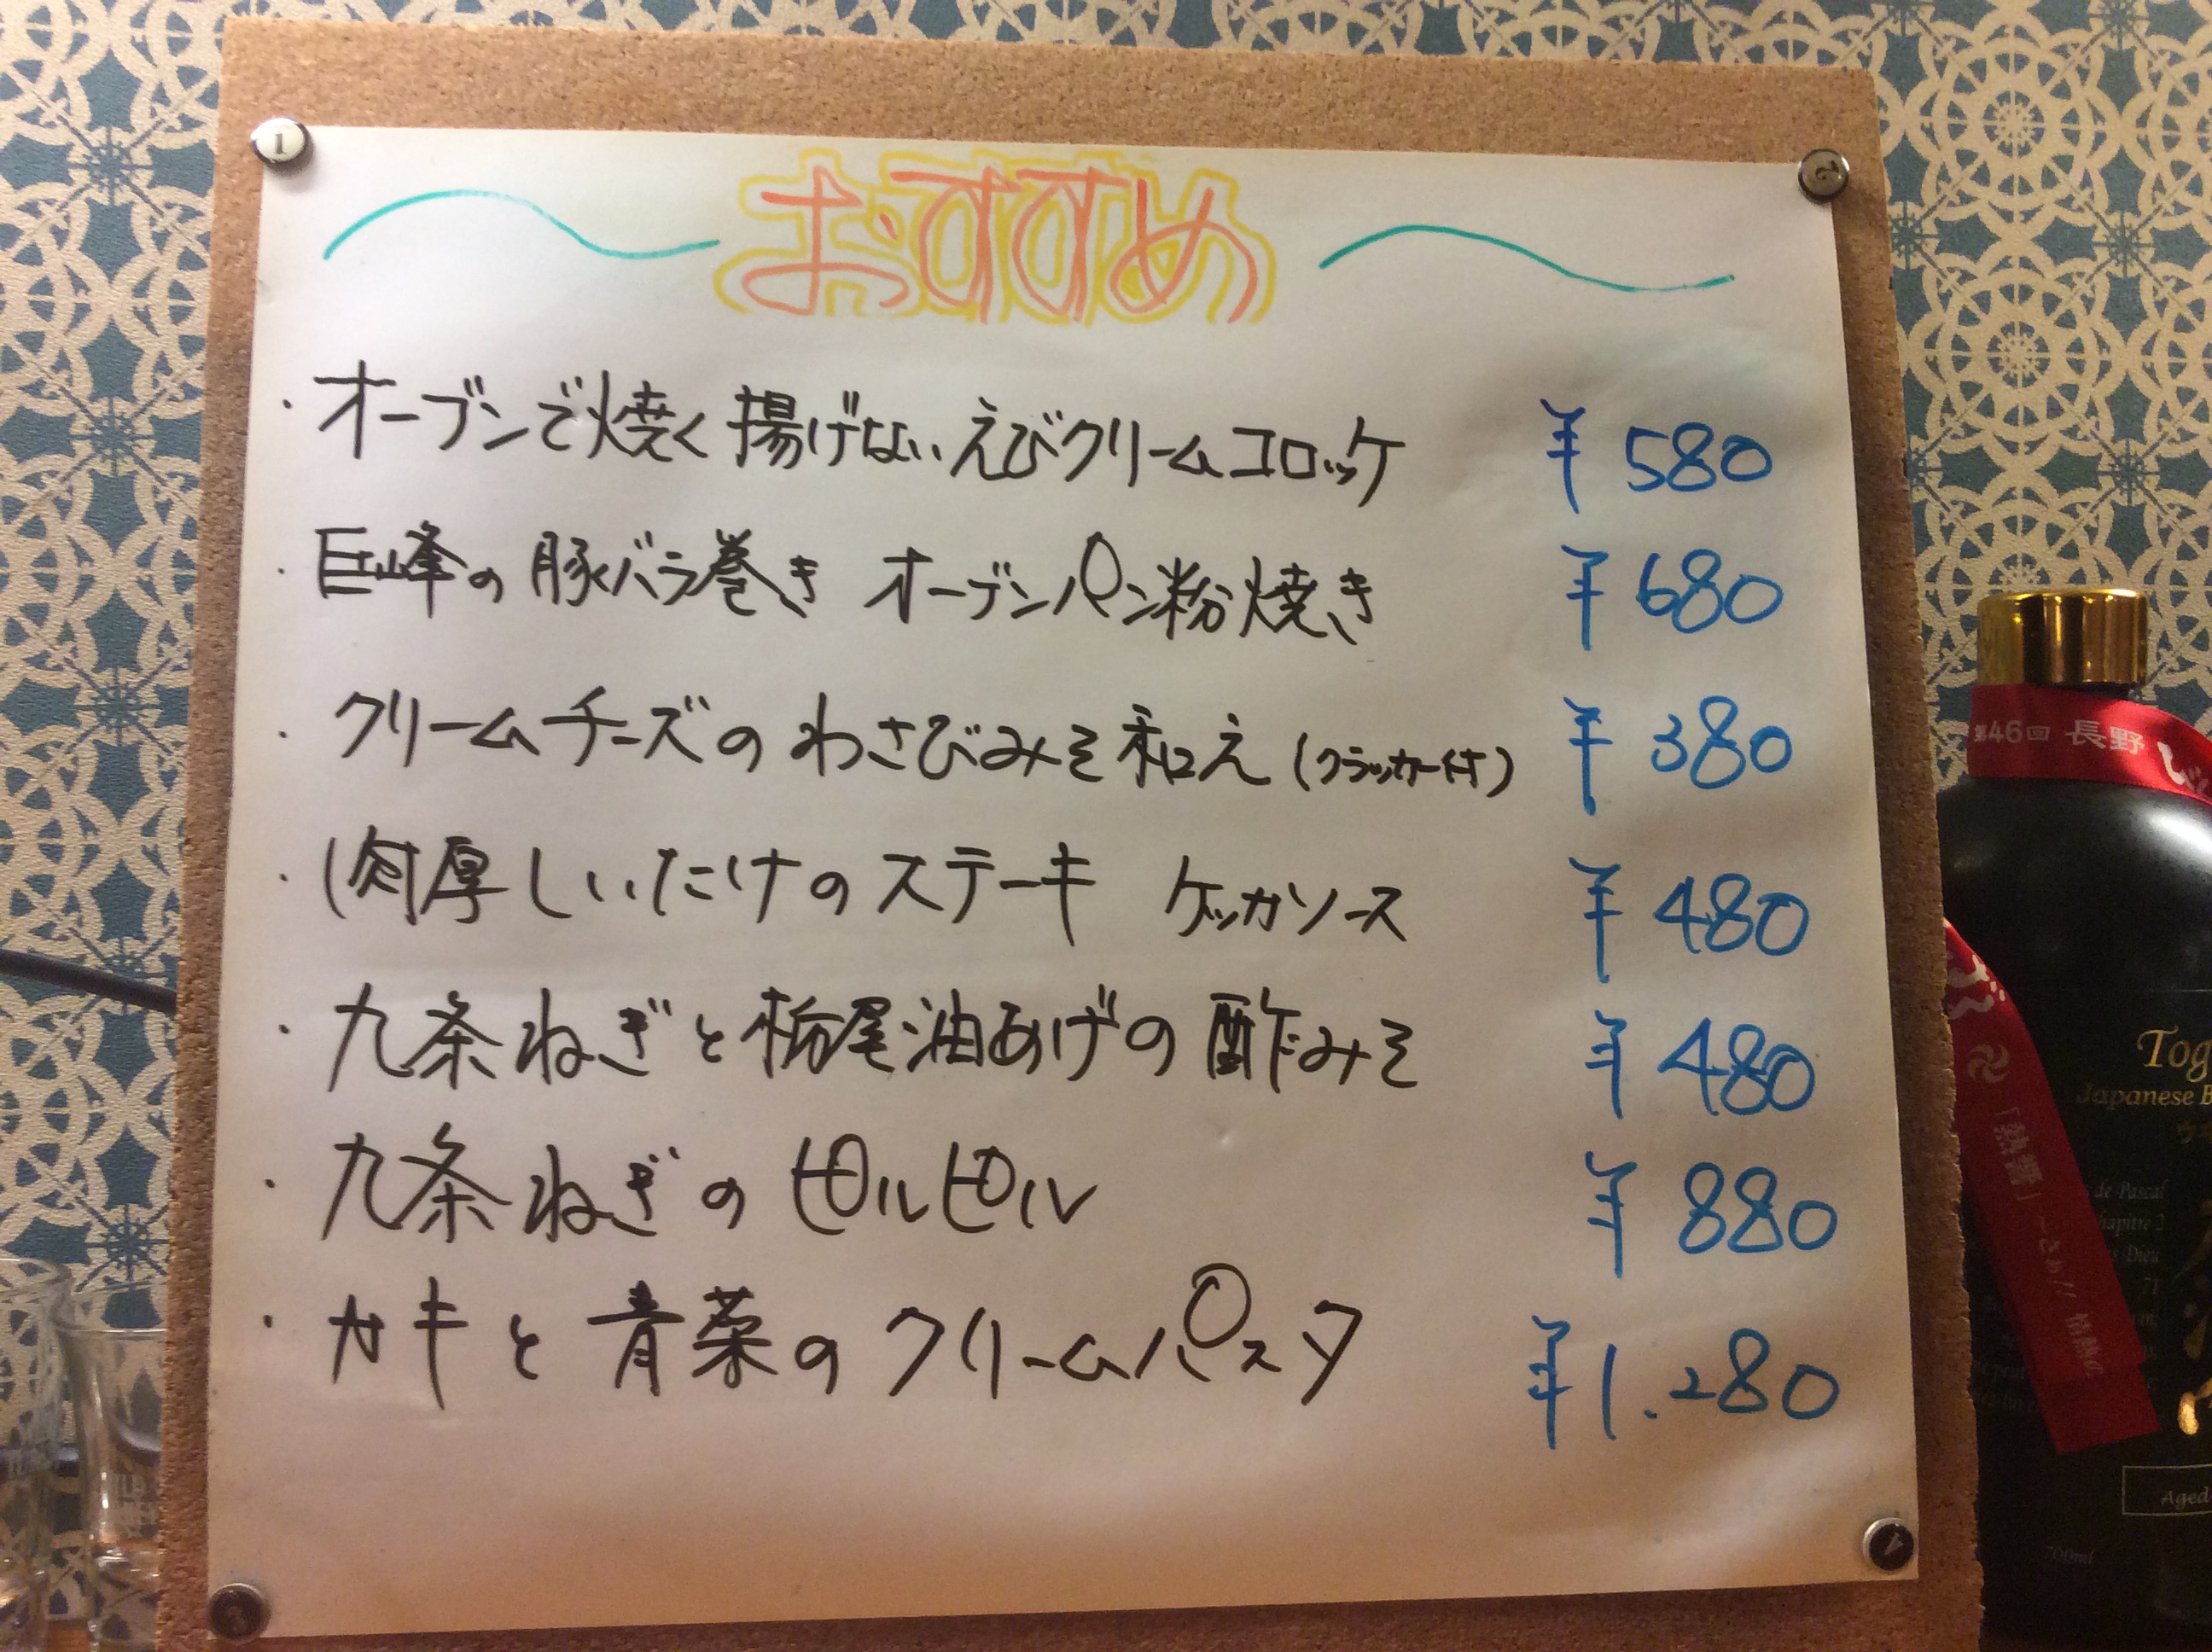 おすすめ
・オーブンで焼く揚げないえびクリームコロッケ ¥580
・巨峰の豚バラ巻き オーブンパン粉焼き ¥680
・クリームチーズのわさびみそ和え(クラッカー付) ¥380
・肉厚しいたけのステーキ ケッカソース ¥480
・九条ねぎと栃尾油あげの酢みそ ¥480
・九条ねぎのピルピル ¥880
・カキと青菜のクリームパスタ ¥1.280
第46回 長野
Tog
Japanese B
de Pascal
hapitre 2
s Dieu
71
「熱響」
Aged
700ml
1
2